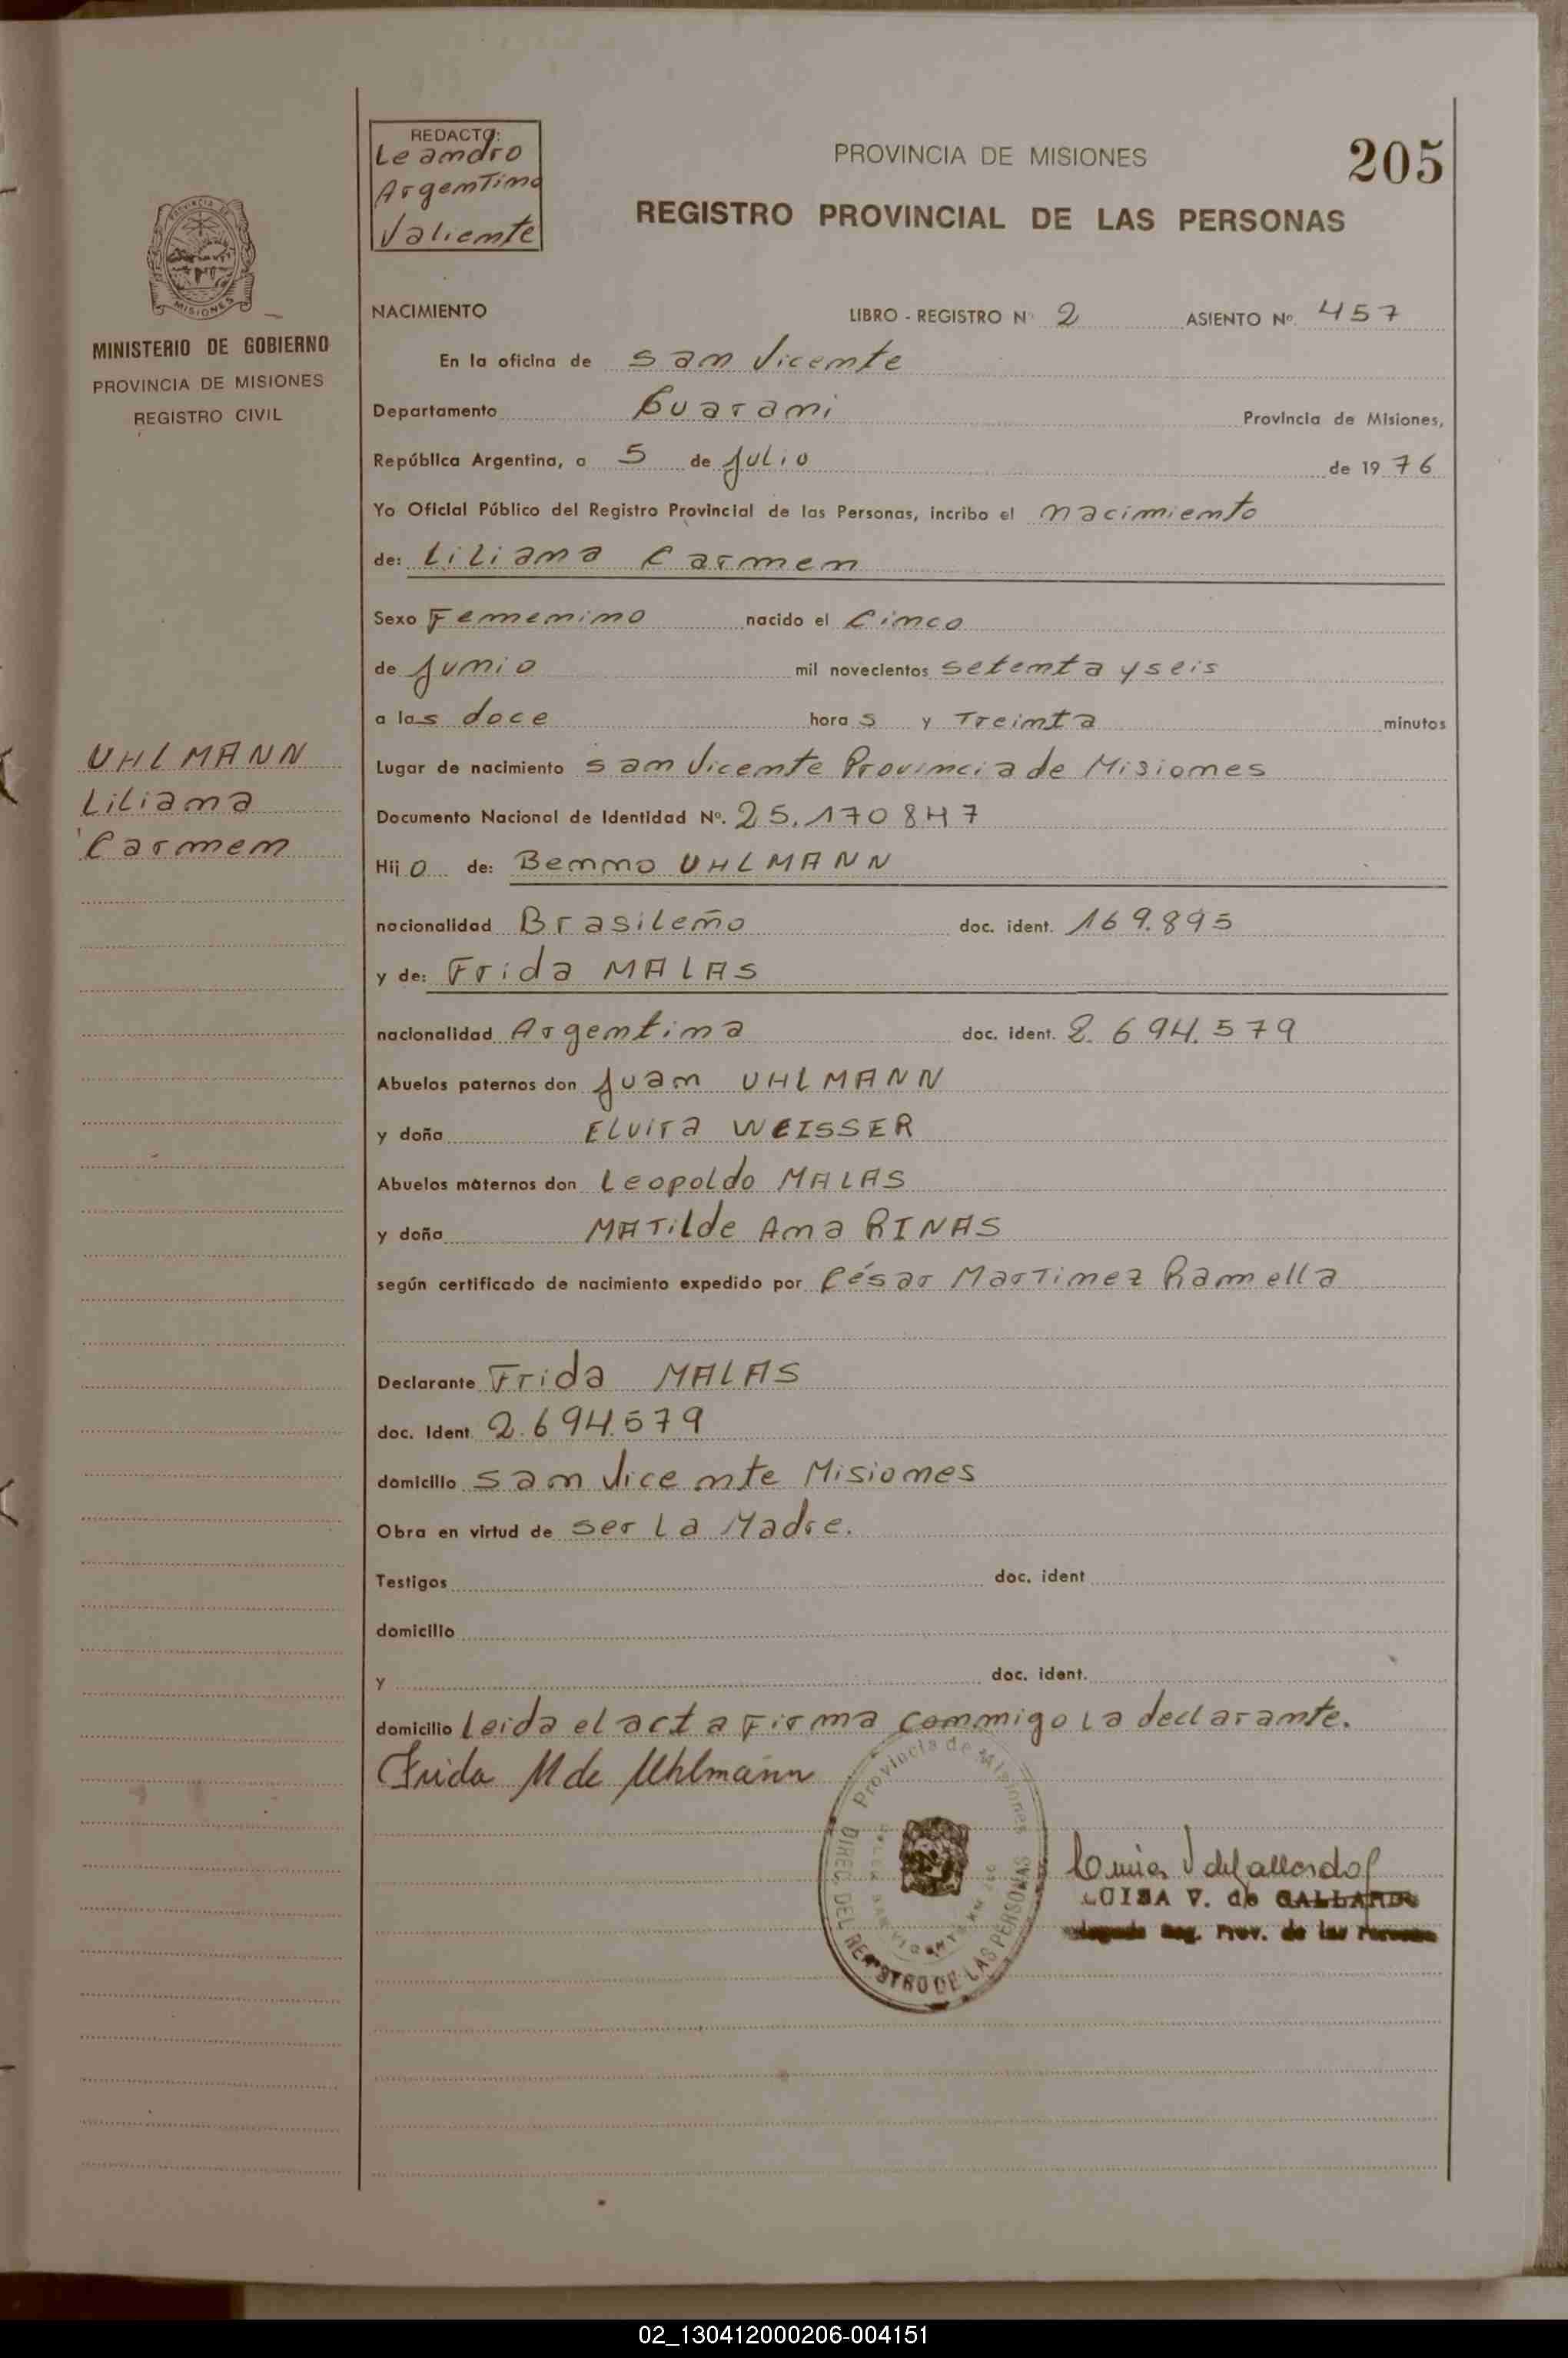 REDACTO:
Leandro
Argentino
Valiente
PROVINCIA DE MISIONES
205
REGISTRO PROVINCIAL DE LAS PERSONAS
MISIONES
MINISTERIO DE GOBIERNO
PROVINCIA DE MISIONES
REGISTRO CIVIL
NACIMIENTO LIBRO - REGISTRO Nº 2 ASIENTO Nº. 457
En la oficina de San Vicente
Departamento Guarani Provincia de Misiones,
República Argentina, a 5 de Julio de 1976
Yo Oficial Público del Registro Provincial de las Personas, incribo el nacimiento
de: Liliana Carmen
Sexo Femenino nacido el Cinco
de Junio mil novecientos setenta y seis
a las doce horas y Treinta minutos
UHLMANN
Liliana
Carmen
Lugar de nacimiento San Vicente Provincia de Misiones
Documento Nacional de Identidad Nº. 25.170847
Hijo de: Benno UHLMANN
nacionalidad Brasileño doc. ident. 169.895
y de: Frida MALAS
nacionalidad Argentina doc. ident. 2.694.579
Abuelos paternos don Juan UHLMANN
y doña ELvira WEISSER
Abuelos maternos don Leopoldo MALAS
y doña MATilde Ana RINAS
según certificado de nacimiento expedido por César Martinez Ramella
Declarante Frida MALAS
doc. Ident. 2.694.579
domicilio San Vicente Misiones
Obra en virtud de ser La Madre.
Testigos doc. ident
domicilio
y doc. ident.
domicilio Leida el acta Firma conmigo La declarante.
Frida M de Uhlmann
Provincia de Misiones
DIREC. DEL REGISTRO DE LAS PERSONAS
LUISA V. de GALLARDO
Reg. Prov. de las Personas
02_130412000206-004151